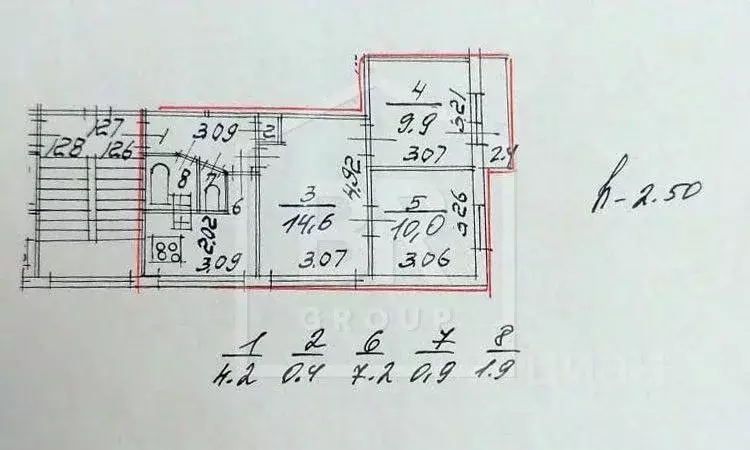 4
9.9
3.21
3.07
2.4
127
128 126
1
3.09
2
8
7
6
3
14,6
4,92
3.07
5
10,0
3.26
3.06
2.02
3.09
h-2.50
GROUP
1 2 6 7 8
4.2 0.4 7.2 0,9 1.9